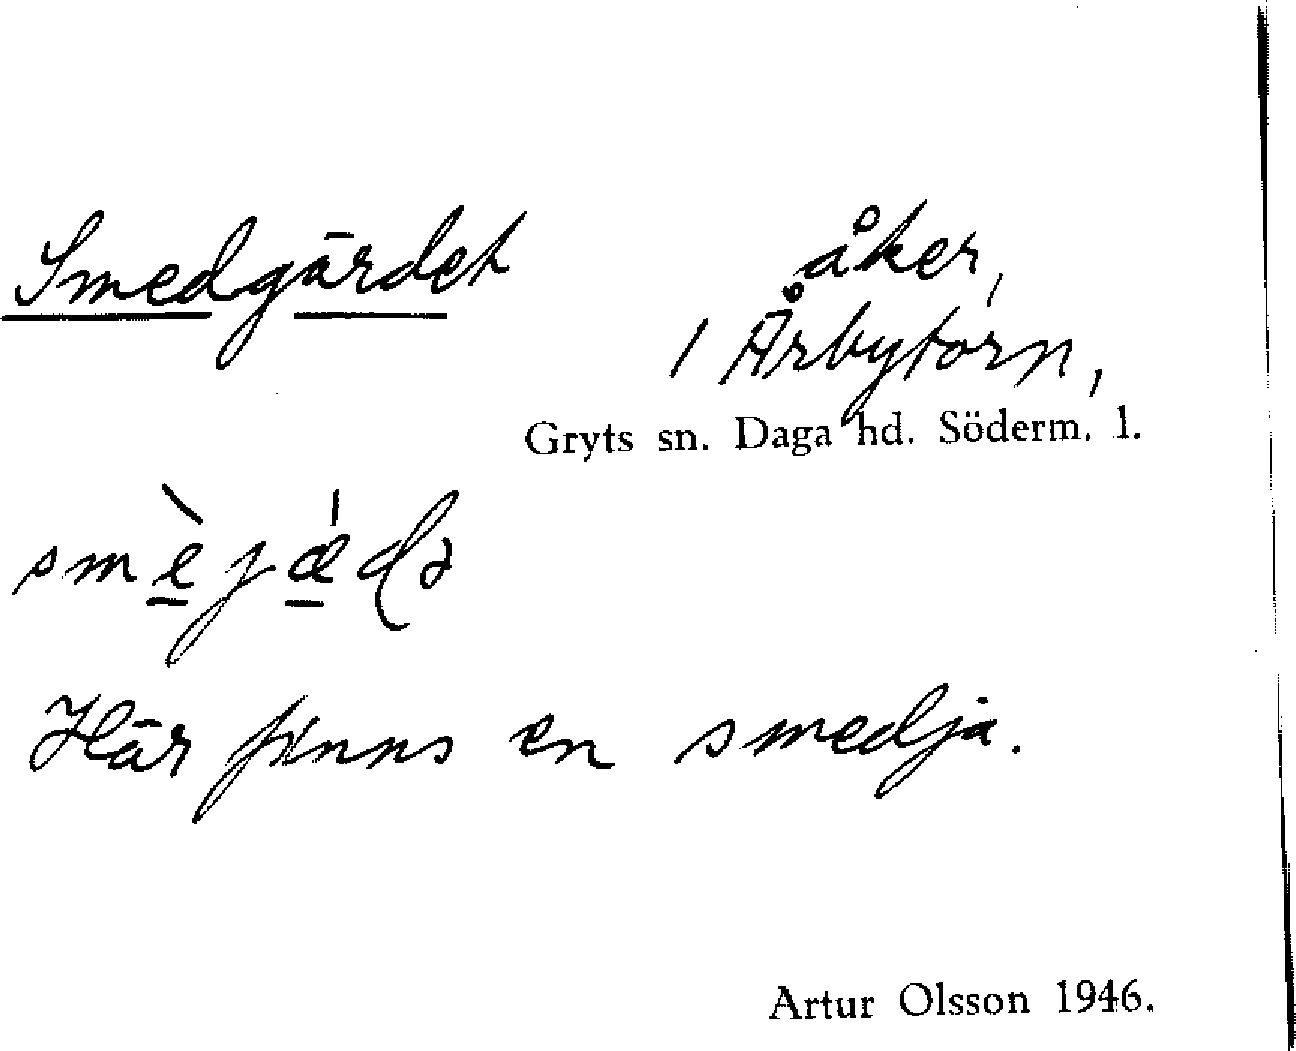 Smedgärdet åker,
1 Årbytorp,
Gryts sn. Daga hd. Söderm. l.
smèjǽdə
Här finns en smedja.
Artur Olsson 1946.